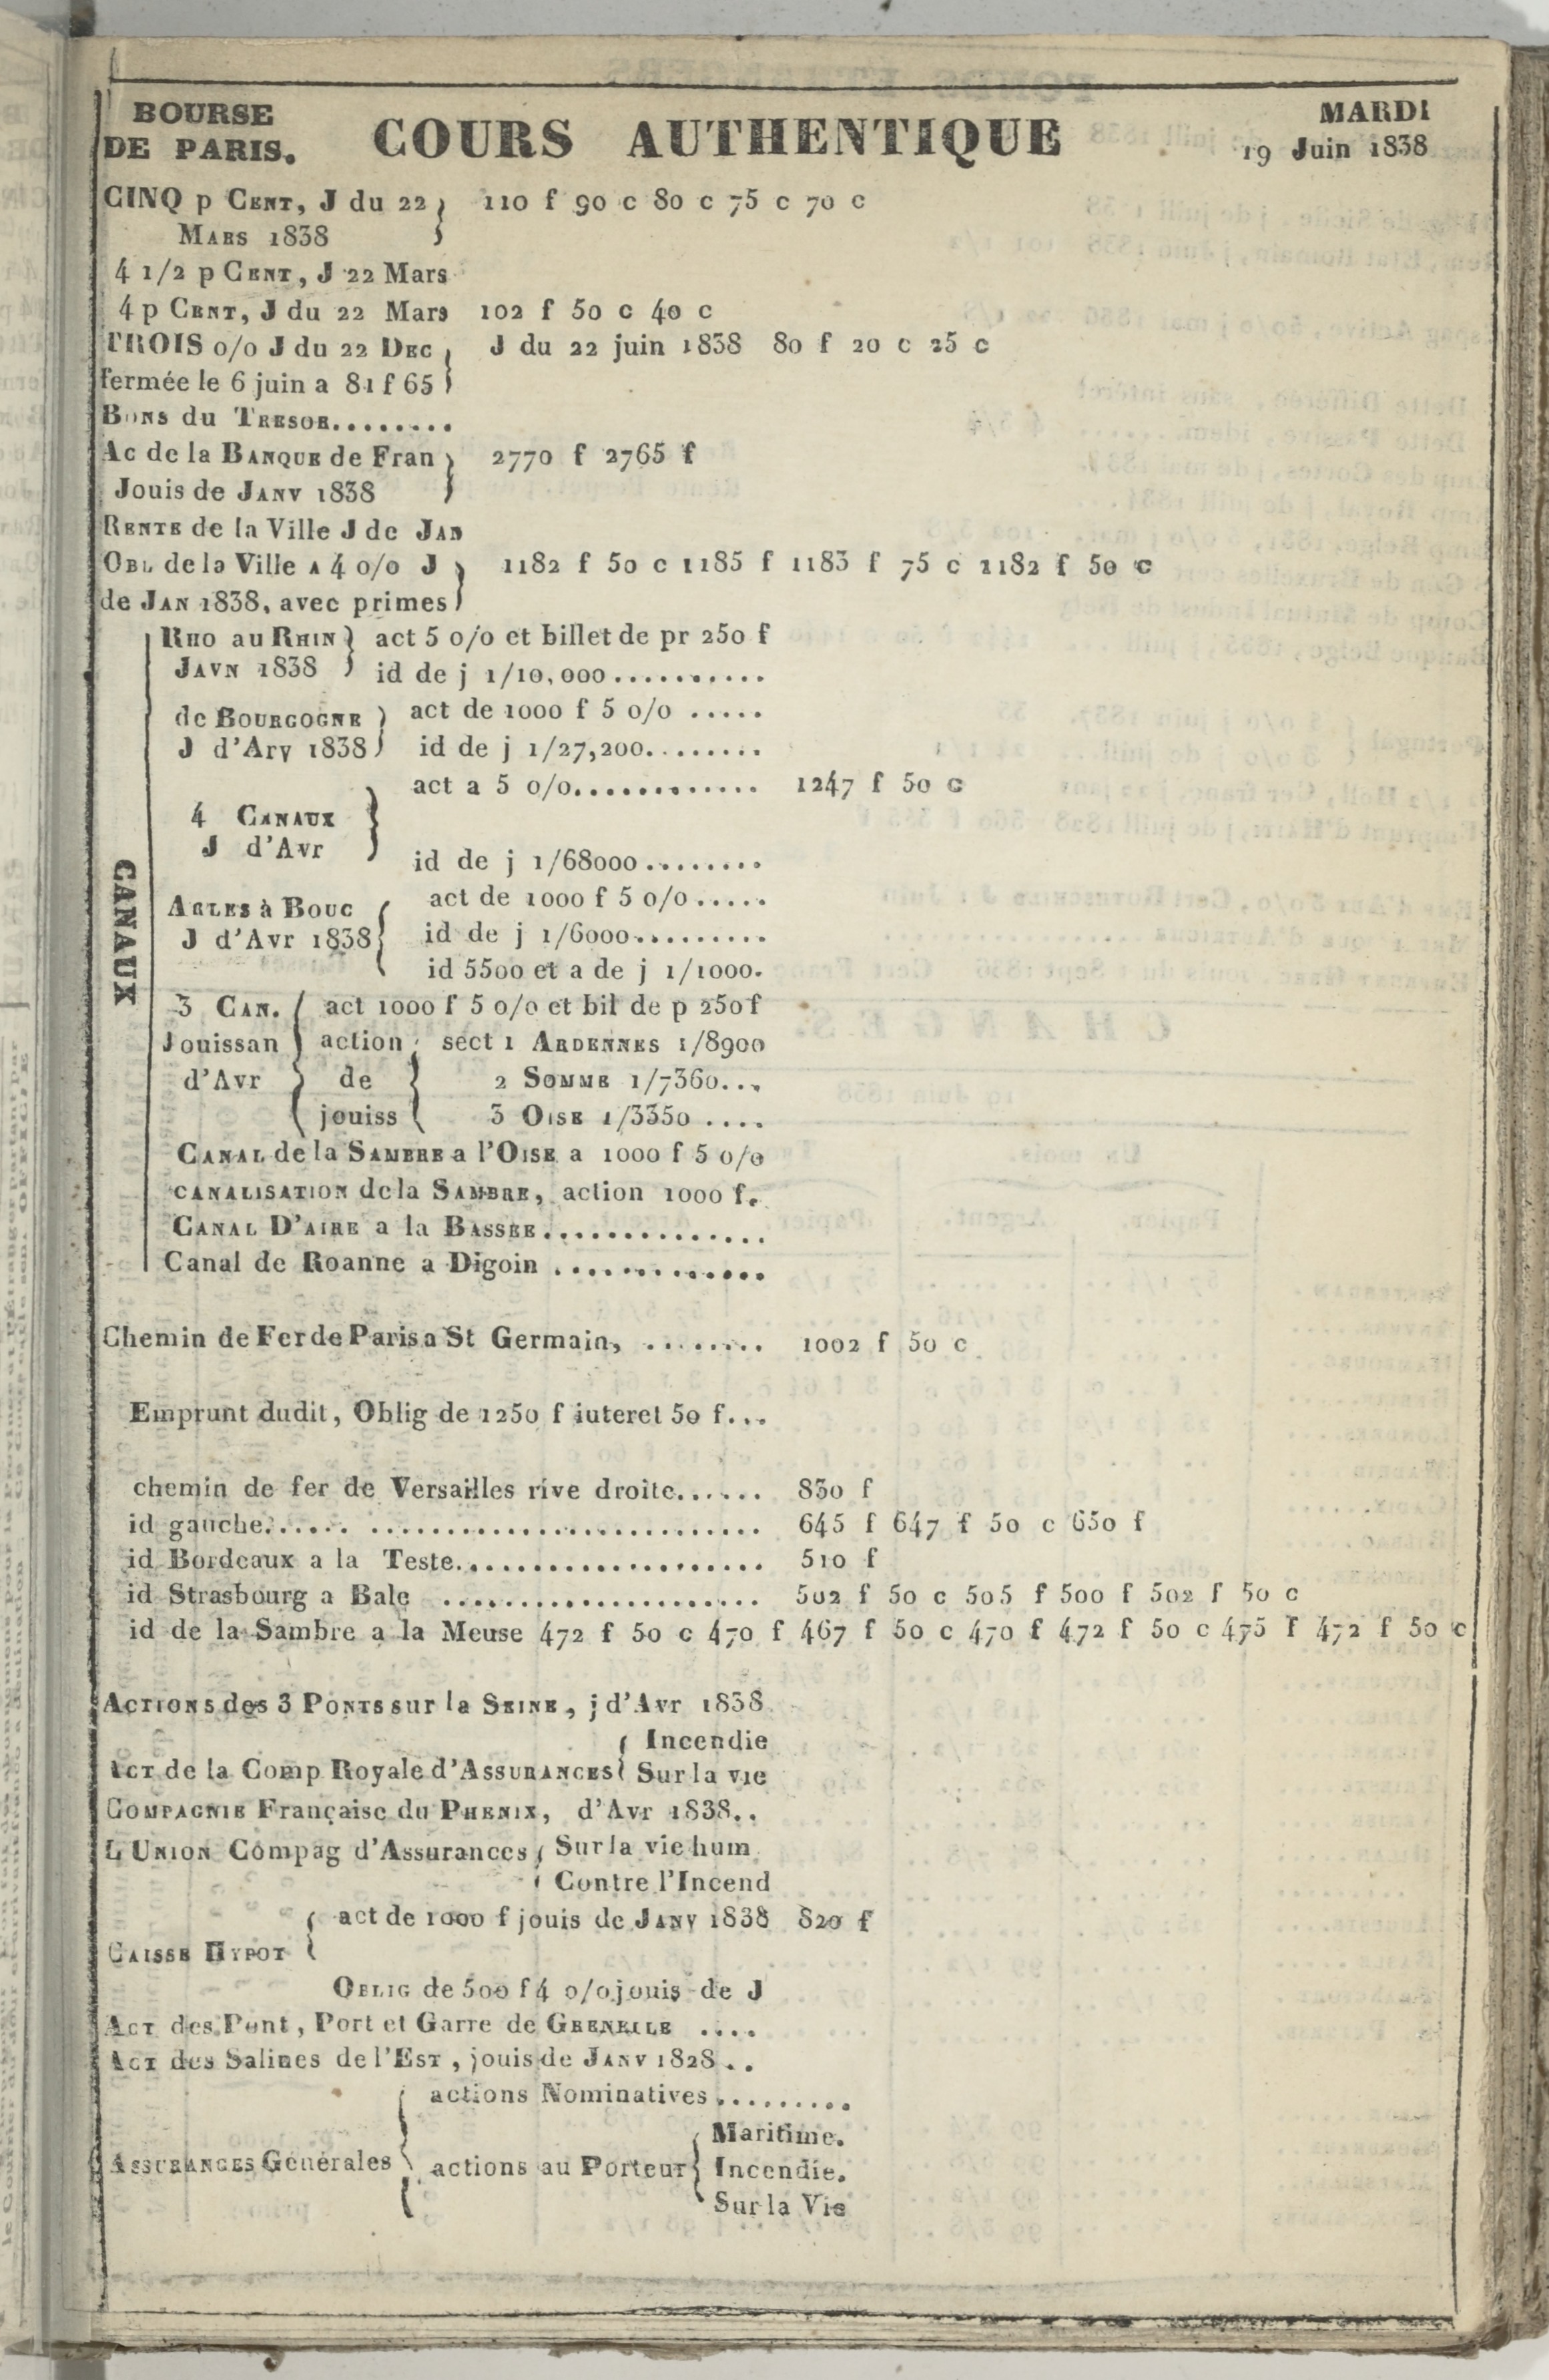 BOURSE
DE PARIS.
COURS AUTHENTIQUE
MARDI
19 Juin 1838
CINQ p CENT, J du 22 110 f 90 c 80 c 75 c 70 c
MARS 1838
4 1/2 p CENT, J 22 Mars
4 p CENT, J du 22 Mars 102 f 50 c 40 c
TROIS o/o J du 22 DEC J du 22 juin 1838 80 f 20 c 25 c
fermée le 6 juin a 81 f 65
BONS du TRESOR........
Ac de la BANQUE de Fran 2770 f 2765 f
Jouis de JANV 1838
RENTE de la Ville J de JAN
OBL de la Ville A 4 o/o J 1182 f 50 c 1185 f 1183 f 75 c 1182 f 50 c
de JAN 1838, avec primes
CANAUX
RHO au RHIN act 5 o/o et billet de pr 250 f
JAVN 1838 id de j 1/10,000..........
de BOURGOGNE act de 1000 f 5 o/o .....
J d'Arv 1838 id de j 1/27,200........
act a 5 o/o............ 1247 f 50 c
4 CANAUX
J d'Avr
id de j 1/68000........
ARLES à BOUC act de 1000 f 5 o/o.....
J d'Avr 1838 id de j 1/6000.........
id 5500 et a de j 1/1000.
3 CAN. act 1000 f 5 o/o et bil de p 250 f
Jouissan action sect 1 ARDENNES 1/8900
d'Avr de 2 SOMME 1/7360...
jouiss 3 OISE 1/3350 ....
CANAL de la SAMBRE a l'OISE a 1000 f 5 o/o
CANALISATION de la SAMBRE, action 1000 f.
CANAL D'AIRE a la BASSEE..............
Canal de Roanne a Digoin .............
Chemin de Fer de Paris a St Germain, ........ 1002 f 50 c
Emprunt dudit, Oblig de 1250 f iuteret 50 f...
chemin de fer de Versailles rive droite...... 830 f
id gauche...... ......................... 645 f 647 f 50 c 650 f
id Bordeaux a la Teste.................... 510 f
id Strasbourg a Bale .................... 502 f 50 c 505 f 500 f 502 f 50 c
id de la Sambre a la Meuse 472 f 50 c 470 f 467 f 50 c 470 f 472 f 50 c 475 f 472 f 50 c
ACTIONS des 3 PONTS sur la SEINE, j d'Avr 1838
Incendie
ACT de la Comp Royale d'ASSURANCES Sur la vie
COMPAGNIE Française du PHENIX, d'Avr 1838..
L UNION Compag d'Assurances Sur la vie hum
Contre l'Incend
act de 1000 f jouis de JANV 1838 820 f
CAISSE HYPOT
OBLIG de 500 f 4 o/o jouis de J
ACT des Pont, Port et Garre de GRENELLE ....
ACT des Salines de l'EST, jouis de JANV 1828..
actions Nominatives.........
Maritime.
ASSURANCES Générales actions au Porteur Incendie.
Sur la Vie